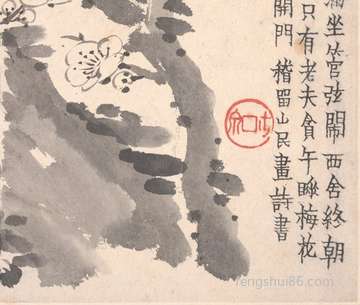 滿坐管弦鬧西舍終朝
只有老夫貪午睡梅花
開門稽留山民畫詩書
fengshui86.com